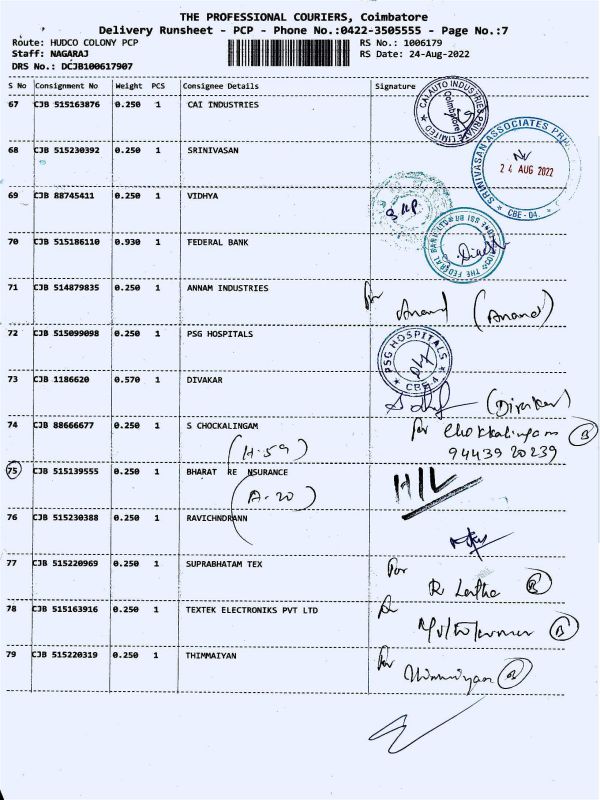 THE PROFESSIONAL COURIERS, Coimbatore
Delivery Runsheet - PCP - Phone No.:0422-3505555 - Page No.:7
Route: HUDCO COLONY PCP RS No.: 1006179
Staff: NAGARAJ RS Date: 24-Aug-2022
DRS No.: DCJB100617907
S No Consignment No Weight PCS Consignee Details Signature
67 CJB 515163876 0.250 1 CAI INDUSTRIES
CAI AUTO INDUSTRIES PRIVATE LIMITED
Coimbatore
68 CJB 515230392 0.250 1 SRINIVASAN
SRINIVASAN ASSOCIATES
24 AUG 2022
CBE-04.
69 CJB 88745411 0.250 1 VIDHYA
70 CJB 515186110 0.930 1 FEDERAL BANK
THE FEDERAL BANK LTD
71 CJB 514879835 0.250 1 ANNAM INDUSTRIES
for Anand (Anand)
72 CJB 515099098 0.250 1 PSG HOSPITALS
PSG HOSPITALS
CBE-4
73 CJB 1186620 0.570 1 DIVAKAR
74 CJB 88666677 0.250 1 S CHOCKALINGAM
for Chokkalingam B
9443920239
(H-59)
75 CJB 515139555 0.250 1 BHARAT RE NSURANCE
H/L
(A-20)
76 CJB 515230388 0.250 1 RAVICHNDRANN
77 CJB 515220969 0.250 1 SUPRABHATAM TEX
for
R Latha B
78 CJB 515163916 0.250 1 TEXTEK ELECTRONIKS PVT LTD
Muthukumar B
79 CJB 515220319 0.250 1 THIMMAIYAN
for